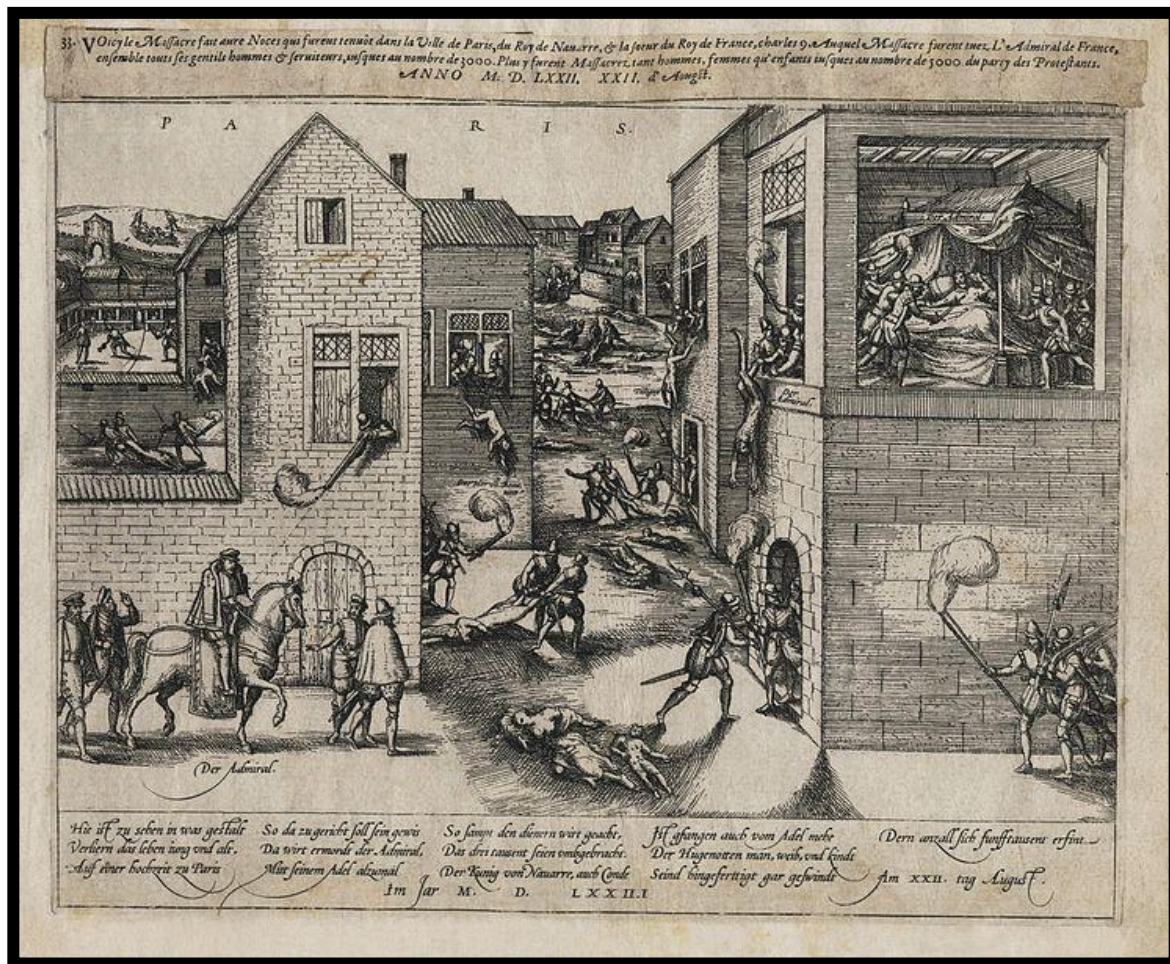 33. VOicy le Massacre fait aux Noces qui furent tenuöt dans la Ville de Paris, du Roy de Nauarre, & la soeur du Roy de France, charles 9. Auquel Massacre furent tuez L'Admiral de France,
ensemble touts ses gentils hommes & seruiteurs, iusques au nombre de 3000. Plus y furent Massacrez tant hommes, femmes qu'enfants iusques au nombre de 5000. du party des Protestants.
ANNO M. D. LXXII. XXII. d'Aougst.
P A R I S.
Der Admiral.
Der Admiral.
Der Admiral.
Hie ist zu sehen in was gestalt
Verliern das leben iung vnd alt,
Auf einer hochzeit zu Paris
So da zugericht soll sein gewis
Da wirt ermorde der Admiral,
Mitt seinem Adel alzumal
So sampt den dienern wirt geacht,
Das dreitausent seien vmbgebracht.
Der Kunig von Nauarre, auch Conde
Ist gfangen auch vom Adel mehe
Der Hugenotten man, weib, vnd kindt
Seind hingefertigt gar geswindt
Dern anzall sich funfftausent erfint
Am XXII. tag August.
Im Jar M. D. LXXII.I